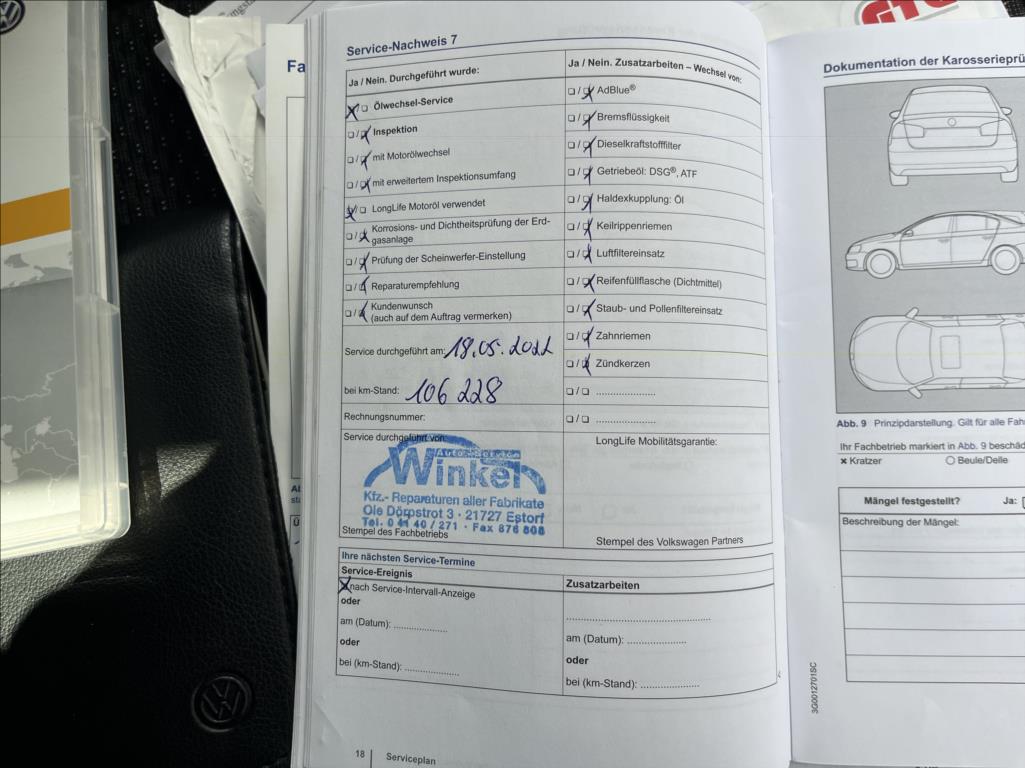 Fa
Service-Nachweis 7
Ja / Nein. Durchgeführt wurde:
Ölwechsel-Service
Inspektion
mit Motorölwechsel
mit erweitertem Inspektionsumfang
LongLife Motoröl verwendet
Korrosions- und Dichtheitsprüfung der Erd-
gasanlage
Prüfung der Scheinwerfer-Einstellung
Reparaturempfehlung
Kundenwunsch
(auch auf dem Auftrag vermerken)
Service durchgeführt am: 18.05.2022
bei km-Stand: 106 228
Rechnungsnummer:
Service durchgeführt von:
Auto-Service
Winkel
Kfz.- Reparaturen aller Fabrikate
Ole Dörpstrot 3 · 21727 Estorf
Tel. 0 41 40 / 271 · Fax 876 808
Stempel des Fachbetriebs
Ja / Nein. Zusatzarbeiten – Wechsel von:
AdBlue®
Bremsflüssigkeit
Dieselkraftstofffilter
Getriebeöl: DSG®, ATF
Haldexkupplung: Öl
Keilrippenriemen
Luftfiltereinsatz
Reifenfüllflasche (Dichtmittel)
Staub- und Pollenfiltereinsatz
Zahnriemen
Zündkerzen
LongLife Mobilitätsgarantie:
Stempel des Volkswagen Partners
Ihre nächsten Service-Termine
Service-Ereignis
nach Service-Intervall-Anzeige
oder
am (Datum): ....................
oder
bei (km-Stand): ....................
Zusatzarbeiten
am (Datum): ....................
oder
bei (km-Stand): ....................
18 Serviceplan
Dokumentation der Karosserieprü
Abb. 9 Prinzipdarstellung. Gilt für alle Fah
Ihr Fachbetrieb markiert in Abb. 9 beschäd
× Kratzer ○ Beule/Delle
Mängel festgestellt? Ja:
Beschreibung der Mängel:
3G0012701SC